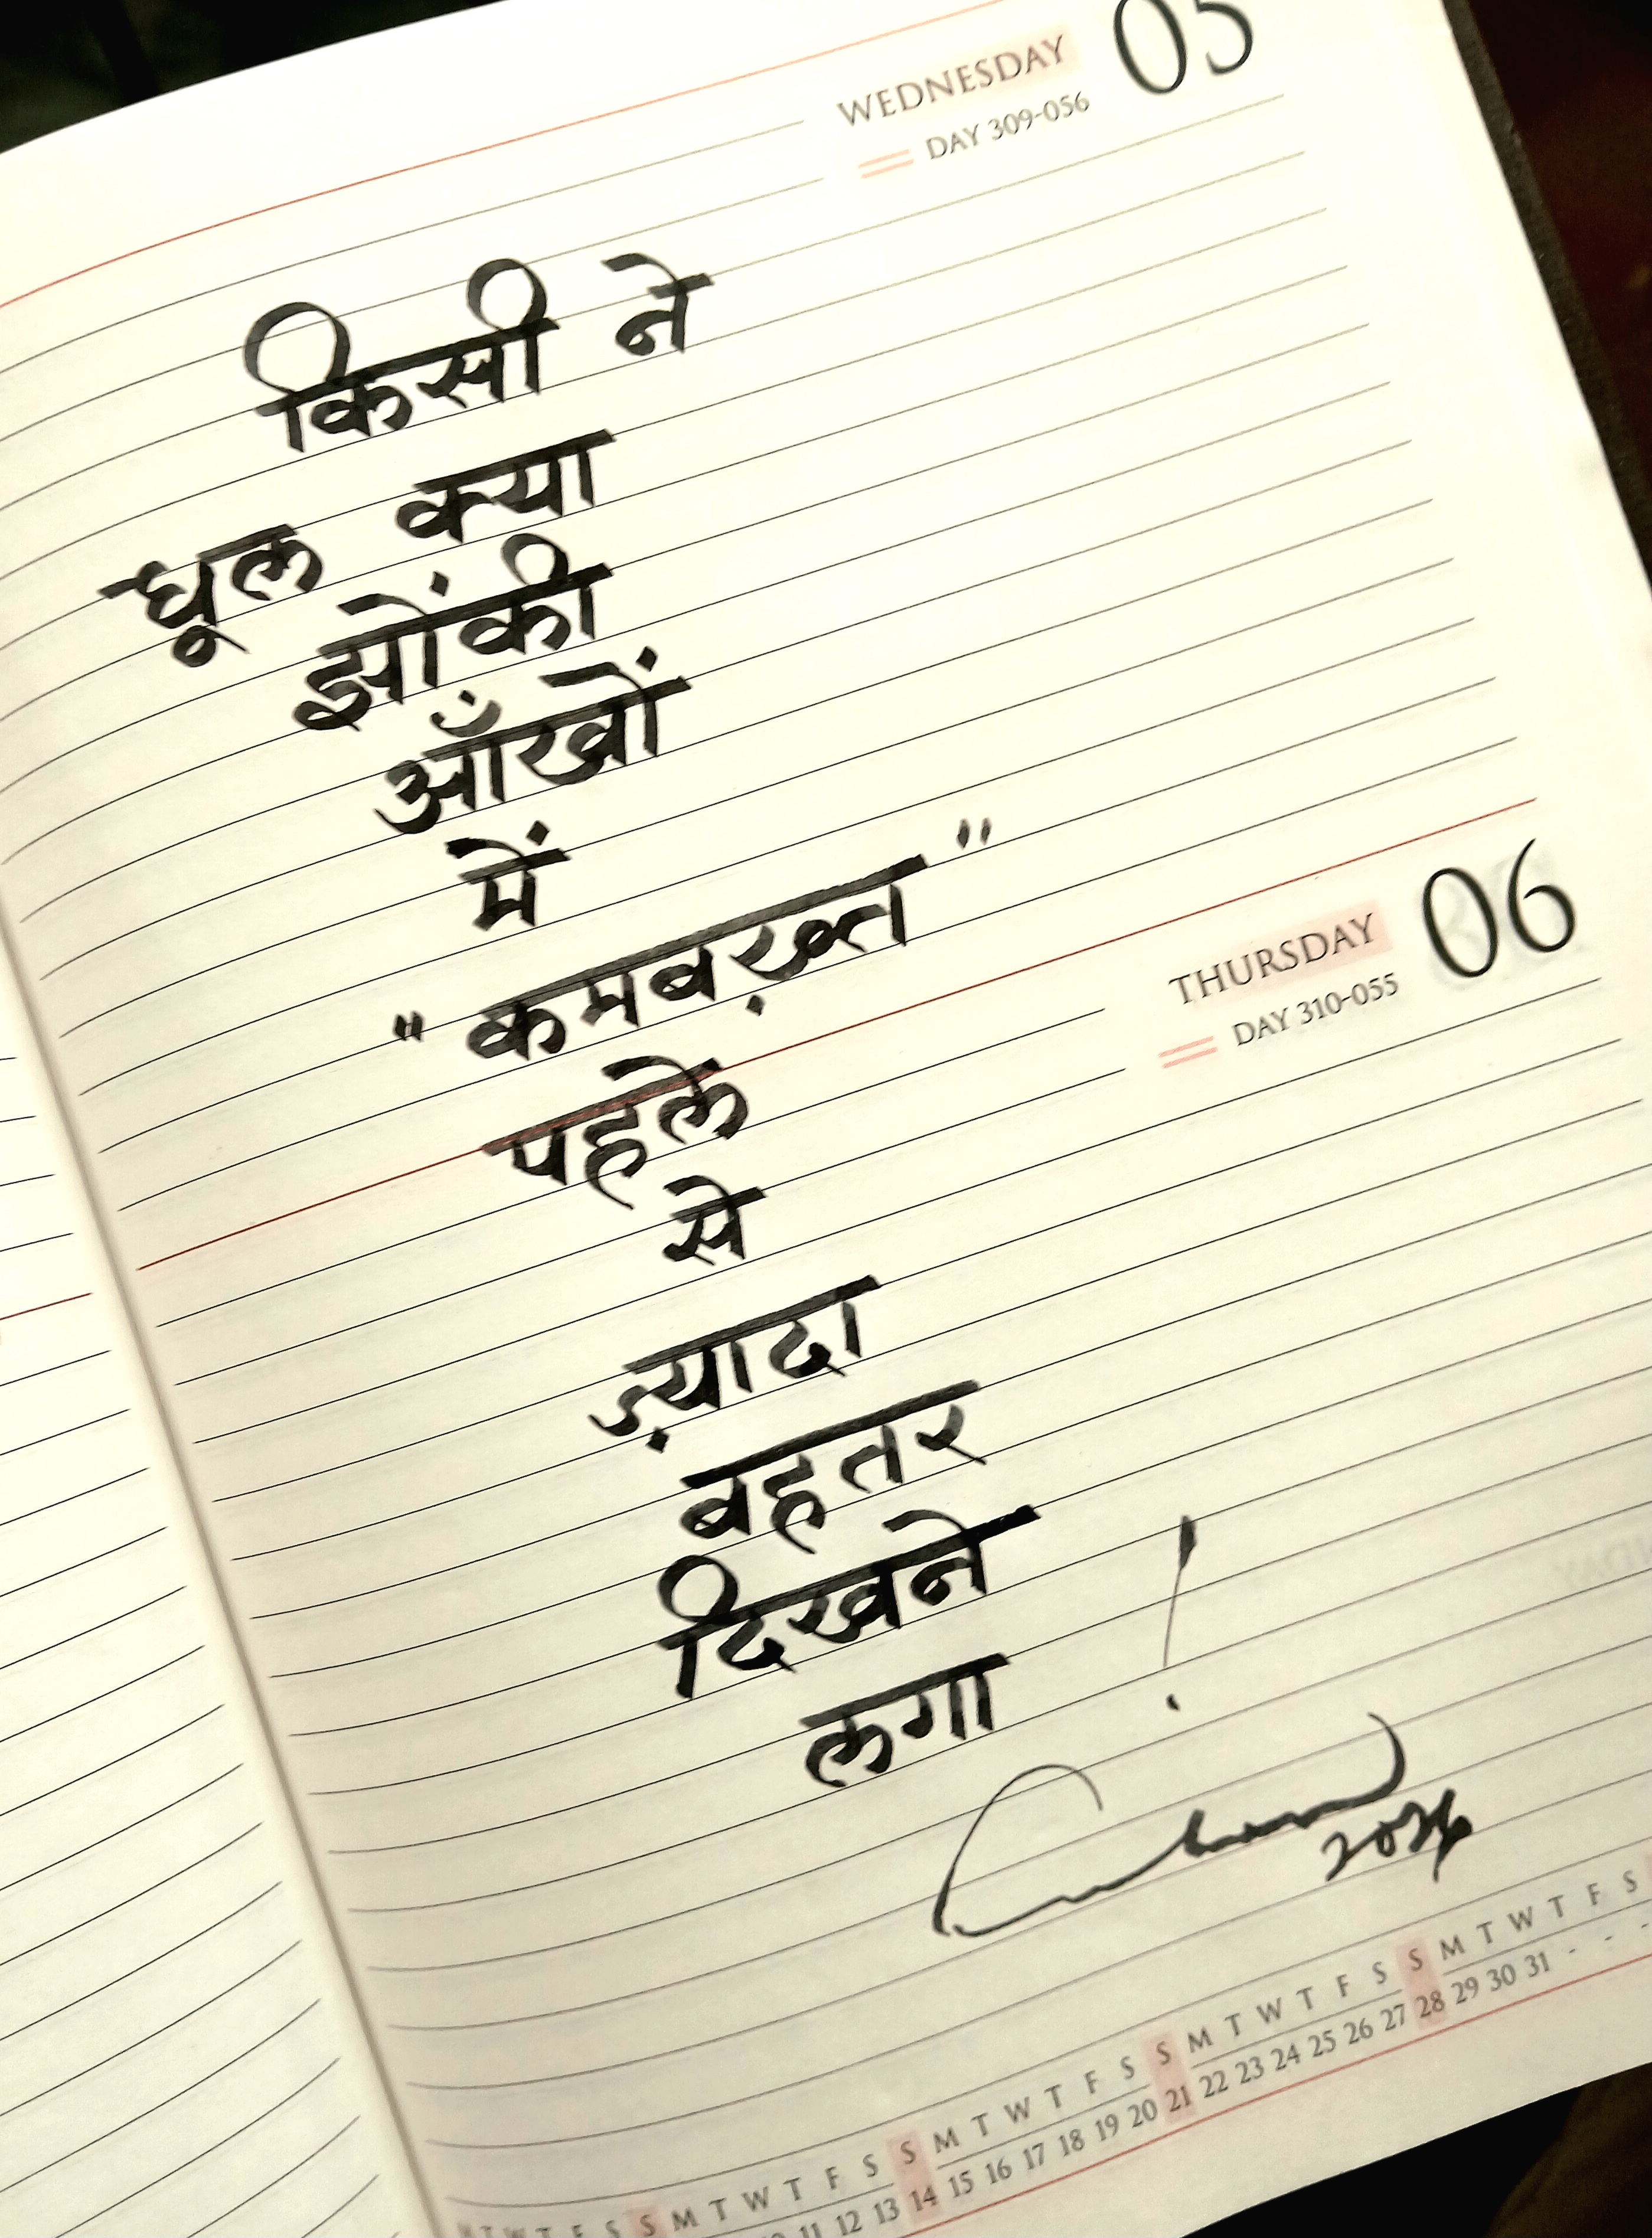 WEDNESDAY 05
DAY 309-056
किसी ने
धूल क्या
झोंकी
आँखों
में
"कमबख़्त"
THURSDAY 06
DAY 310-055
पहले
से
ज़्यादा
बहतर
दिखने
लगा !
2026
S S M T W T F S S M T W T F S S M T W T F S S M T W T F S
11 12 13 14 15 16 17 18 19 20 21 22 23 24 25 26 27 28 29 30 31 - - -